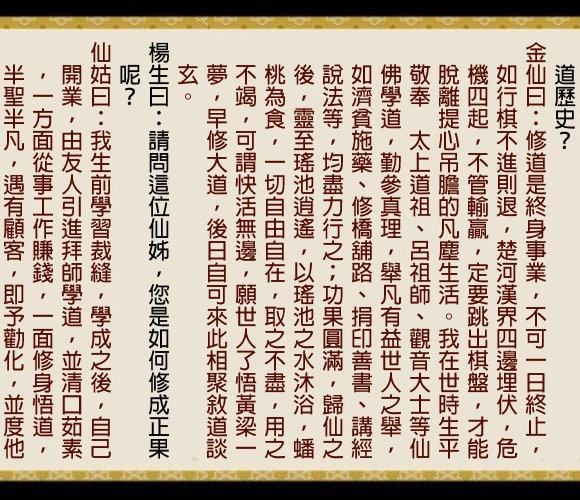 道歷史？
金仙曰：修道是終身事業，不可一日終止，
如行棋不進則退，楚河漢界四邊埋伏，危
機四起，不管輸贏，定要跳出棋盤，才能
脫離提心吊膽的凡塵生活。我在世時生平
敬奉　太上道祖、呂祖師、觀音大士等仙
佛學道，勤參真理，舉凡有益世人之舉，
如濟貧施藥、修橋舖路、捐印善書、講經
說法等，均盡力行之；功果圓滿，歸仙之
後，靈至瑤池逍遙，以瑤池之水沐浴，蟠
桃為食，一切自由自在，取之不盡，用之
不竭，可謂快活無邊，願世人了悟黃粱一
夢，早修大道，後日自可來此相聚敘道談
玄。
楊生曰：請問這位仙姊，您是如何修成正果
呢？
仙姑曰：我生前學習裁縫，學成之後，自己
開業，由友人引進拜師學道，並清口茹素
，一方面從事工作賺錢，一面修身悟道，
半聖半凡，遇有顧客，即予勸化，並度他